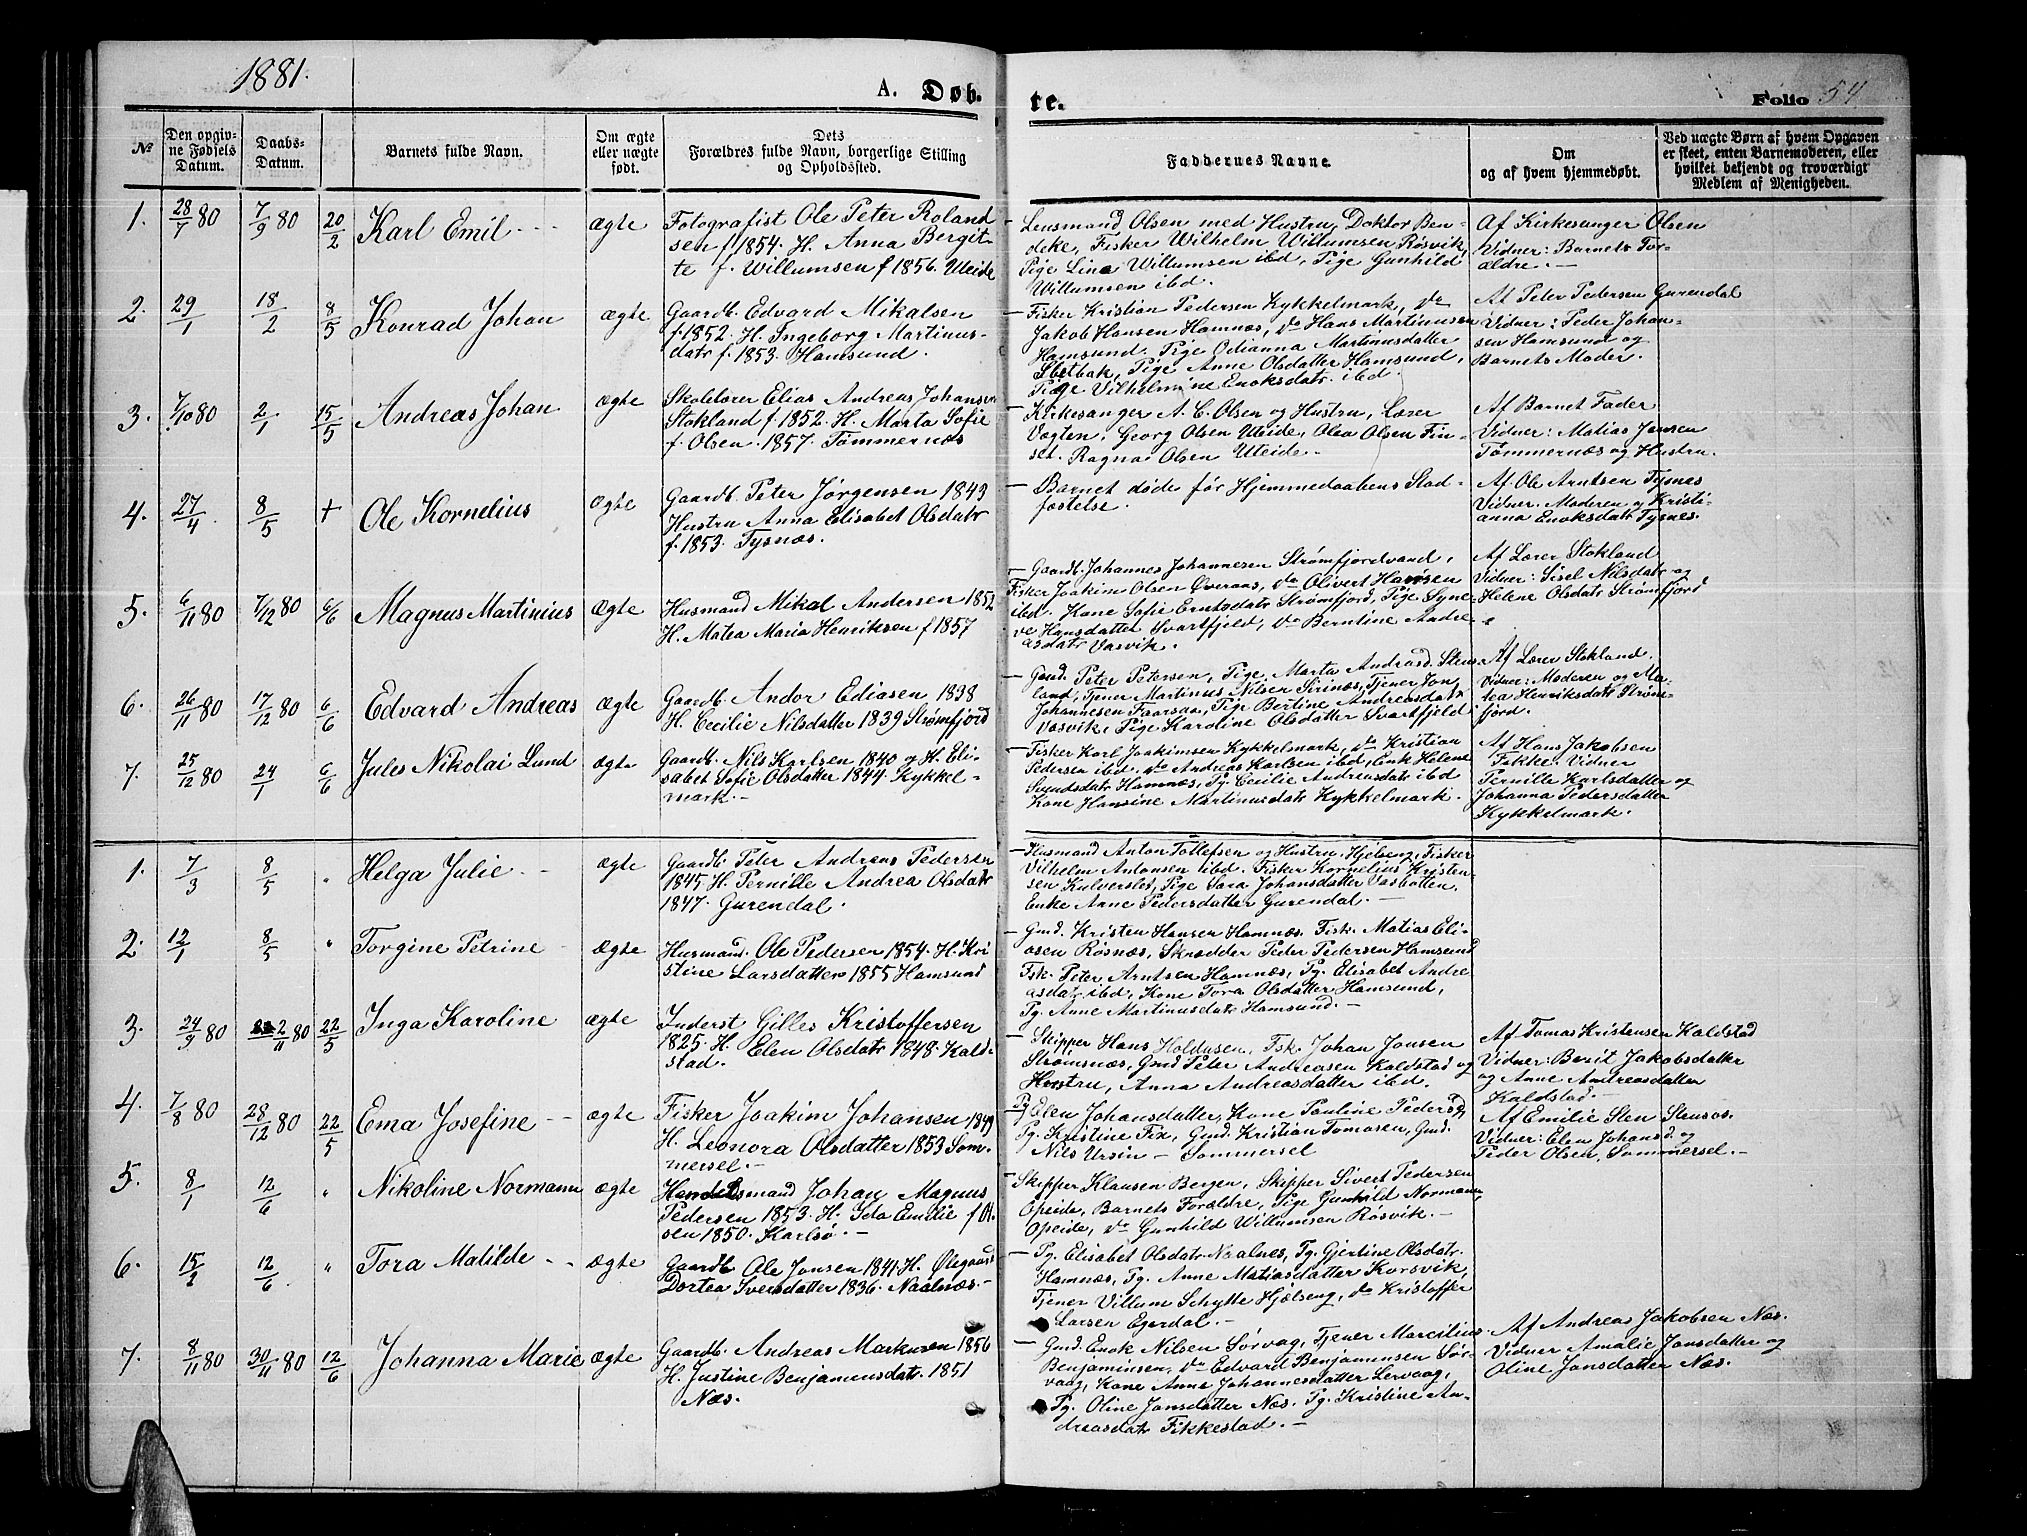 1881.
A. Døb.
te.
Folio 54
№
Den opgiv-
ne Fødsels
Datum.
Daabs-
Datum.
Barnets fulde Navn.
Om ægte
eller uægte
født.
Dets
Forældres fulde Navn, borgerlige Stilling
og Opholdssted.
Faddernes Navne.
Om
og af hvem hjemmedøbt.
Ved uægte Børn af hvem Opgaven
er skeet, enten Barnemoderen, eller
hvilket bekjendt og troværdigt
Medlem af Menigheden.
1. 28/7 80 7/9 80 20/2 Karl Emil ægte
Fotografist Ole Peter Roland
sen f 1854. H. Anna Bergit-
te f. Willumsen f 1856. Uteide
Lensmand Olsen med Hustru, Doktor Ben-
deke, Fisker Wilhelm Willumsen Røsvik,
Pige Lina Willumsen ibd, Pige Gunhild
Willumsen ibd.
Af Kirkesanger Olsen
Vidner: Barnets For-
ældre.
2. 29/1 18/2 8/5 Konrad Johan ægte
Gaardb. Edvard Mikalsen
f. 1852. H. Ingeborg Martinus-
datr f. 1853. Hamsund.
Fisker Kristian Pedersen Kykkelmark, do
Jakob Hansen Hamnæs, do Hans Martinusen
Hamsund. Pige Odianna Martinusdatter
Sletbak, Pige Anne Olsdatter Hamsund,
Pige Vilhelmine Enoksdatr. ibd.
Af Peter Pedersen Gurendal
Vidner: Peder Johan-
sen Hamsund og
Barnets Moder.
3. 7/10 80 2/1 15/5 Andreas Johan ægte
Skolelærer Elias Andreas Johansen
Stokland f 1852. H. Marta Sofie
f. Olsen. 1857. Tømmernæs
Kirkesanger A. C. Olsen og Hustru, Lærer
Vogten, Georg Olsen Uteide, Olea Olsen Fin-
set. Ragna Olsen Uteide.
Af Barnet Fader
Vidner: Matias Jensen
Tømmernæs og Hustru.
4. 27/4 8/5 + Ole Kornelius ægte
Gaardb. Peter Jørgensen 1843
Hustru Anna Elisabet Olsdatr
f. 1853. Tysnæs.
Barnet døde før Hjemmedaabens Stad-
fæstelse.
Af Ole Arntsen Tysnes
Vidner. Moderen og Kristi-
anna Enoksdatr Tysnes.
5. 6/11 80 7/12 80 6/6 Magnus Martinius ægte
Husmand Mikal Andersen 1852
H. Matea Maria Henriksen f 1857
Gaardb. Johannes Johannesen Strømfjordvand,
Fisker Joakim Olsen Øveraas, do Olivert Hansen
ibd. Kone Sofie Erntsdatr Strømfjord, Pige Syne-
ve Hansdatter Svartfjeld, do Berntine Andre-
asdatr Vasvik.
Af Lærer Stokland
Vidner: Sisel Nilsdatr og
Helene Olsdatr Strømfjord
6. 26/11 80 17/12 80 6/6 Edvard Andreas ægte
Gaardb. Andor Ediasen 1838
H. Cecilie Nilsdatter 1839 Strømfjord
Gmd. Peter Petersen, Pige Marta Andreasd. Stens-
land, Tjener Martinus Nilsen Sirinæs, Tjener Jon
Johannesen Faarsaa, Pige Bertine Andreasdatr
Vasvik, Pige Karoline Olsdatter Svartfjeld
Af Lærer Stokland.
Vidner: Moderen og Ma-
tea Henriksdatr Strøm-
fjord.
7. 25/12 80 24/1 6/6 Jules Nikolai Lund ægte
Gaardb. Nils Karlsen 1840 og H. Eli-
sabet Sofie Olsdatter 1844. Kykkel-
mark.
Fisker Karl Joakimsen Kykkelmark, do Kristian
Pedersen ibd, do Andreas Karlsen ibd, Enk Helene
Hamnæs, Pg. Cecilie Andreasdatr ibd
Kone Hansine Martinusdatr Kykkelmark.
Af Hans Jakobsen
Fikke. Vidner
Pernille Karlsdatter og
Johanna Pedersdatter
Kykkelmark.
1. 7/3 8/5 " Helga Julie ægte
Gaardb. Peter Andreas Pedersen
1845 H. Pernille Andrea Olsdatr
1847. Gurendal.
Husmand Anton Tollefsen og Hustru, Hjelseng, Fisker
Vilhelm Antonsen ibd. Fisker Kornelius Kristen-
sen Kulverslet, Pige Sara Johansdatter Vasbotten,
Enke Anne Pedersdatter Gurendal.
2. 12/1 8/5 " Torgine Petrine ægte
Husmand. Ole Pedersen 1854. H. Kri
stine Larsdatter 1855 Hamsund
Gmd. Kristen Hansen Hamnæs. Fisk. Matias Eli-
asen Røsnæs, Skrædder Peder Pedersen Hamsund
Fsk. Peter Arntsen Hamnæs, Pg. Elisabet Andre
asdatr ibd, Kone Tora Olsdatter Hamsund,
Pg. Anne Martinusdatr Hamsund.
3. 24/9 80 2/11 80 22/5 Inga Karoline ægte
Inderst Gilles Kristoffersen
1825. H. Elen Olsdatr 1848. Kald-
stad.
Skipper Hans Koldusen, Fsk. Johan Jonsen
Strømsnæs, Gmd Peter Andreasen Kaldstad og
Hustru, Anna Andreasdatter ibd.
Af Tomas Kristensen Kaldstad
Vidner: Berit Jakobsdatter
og Anne Andreasdatter
Kaldstad.
4. 7/8 80 28/12 80 22/5 Ema Josefine ægte
Fisker Joakim Johansen 1849
H. Leonora Olsdatter 1853 Som-
mersel.
Pg Elen Johansdatter, Kone Pauline Pedersd,
Pg. Kristine Fix, Gmd. Kristian Tomasen, Gmd.
Nils Ursin - Sommersel
Af Emilie Sten Stensos.
Vidner: Elen Johansd. og
Peder Olsen, Sommersel.
5. 8/1 12/6 " Nikoline Normann ægte
Handelsmand Johan Magnus
Pedersen 1853. H. Ida Emilie f Ol-
sen 1850. Karlsø.
Skipper Klausen Bergen, Skipper Sivert Pedersen
Opeide, Barnets Forældre, Pige Gunhild Normann,
Opeide, do Gunhild Willumsen Røsvik.
6. 15/2 12/6 " Tora Matilde ægte
Gaardb Ole Jonsen 1841 H. Ølegaard
Dortea Iversdatter 1836. Naalnæs.
Pg. Elisabet Olsdatr Naalnes, Pg. Gjertine Olsdatr.
Hamnæs, Pg. Anne Matiasdatter Korsvik,
Tjener Villum Schytte Hjælseng, do Kristoffer
Larsen Egerdal.
7. 8/11 80 30/11 80 12/6 Johanna Marie ægte
Gaardb. Andreas Markusen 1856
H. Justine Benjamensdatr. 1851
Næs.
Gmd. Enok Nilsen Sørvaag, Tjener Marcilius
Benjaminsen, do Edvard Benjaminsen Sør-
vaag, Kone Anne Johannesdatter Lervaag,
Pg. Oline Jonsdatter Næs. Pg. Kristine An-
dreasdatr Fikkestad.
Af Andreas Jakobsen Næs.
Vidner Amalie Jonsdatter og
Oline Jonsdatter Næs.